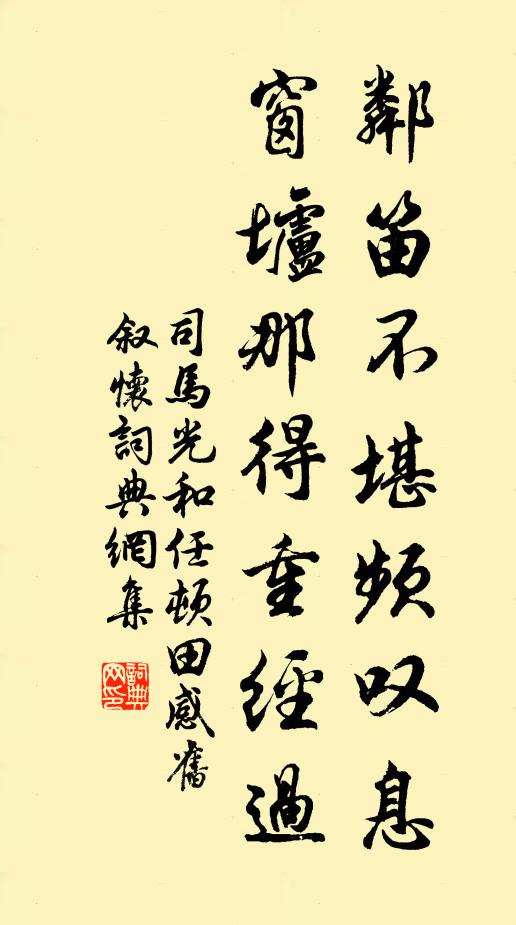 鄰笛不堪頻叹息
窗壚那得重經過
司馬光和任頓田感舊
叙懷詞典網集
詞典网印